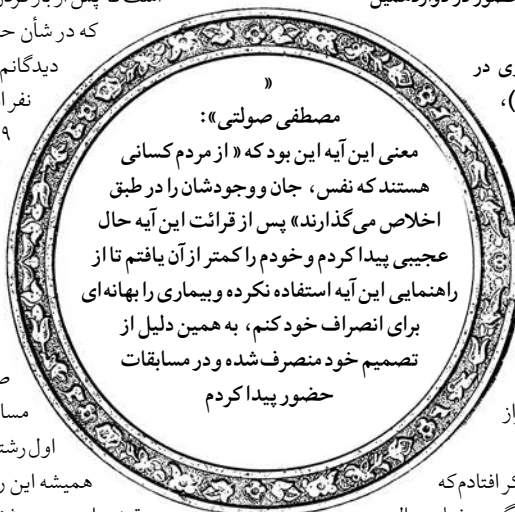 حضور در دوازدهمین
ری در
)،
«
مصطفی صولتی»:
معنی این آیه این بود که « از مردم کسانی
هستند که نفس، جان و وجودشان را در طبق
اخلاص می‌گذارند» پس از قرائت این آیه حال
عجیبی پیدا کردم و خودم را کمتر از آن یافتم تا از
راهنمایی این آیه استفاده نکرده و بیماری را بهانه‌ای
برای انصراف خود کنم، به همین دلیل از
تصمیم خود منصرف شده و در مسابقات
حضور پیدا کردم
که در شأن ح
دیدگانم
نفر از
۹
مسا
اول رشت
همیشه این ر
کر افتادم که